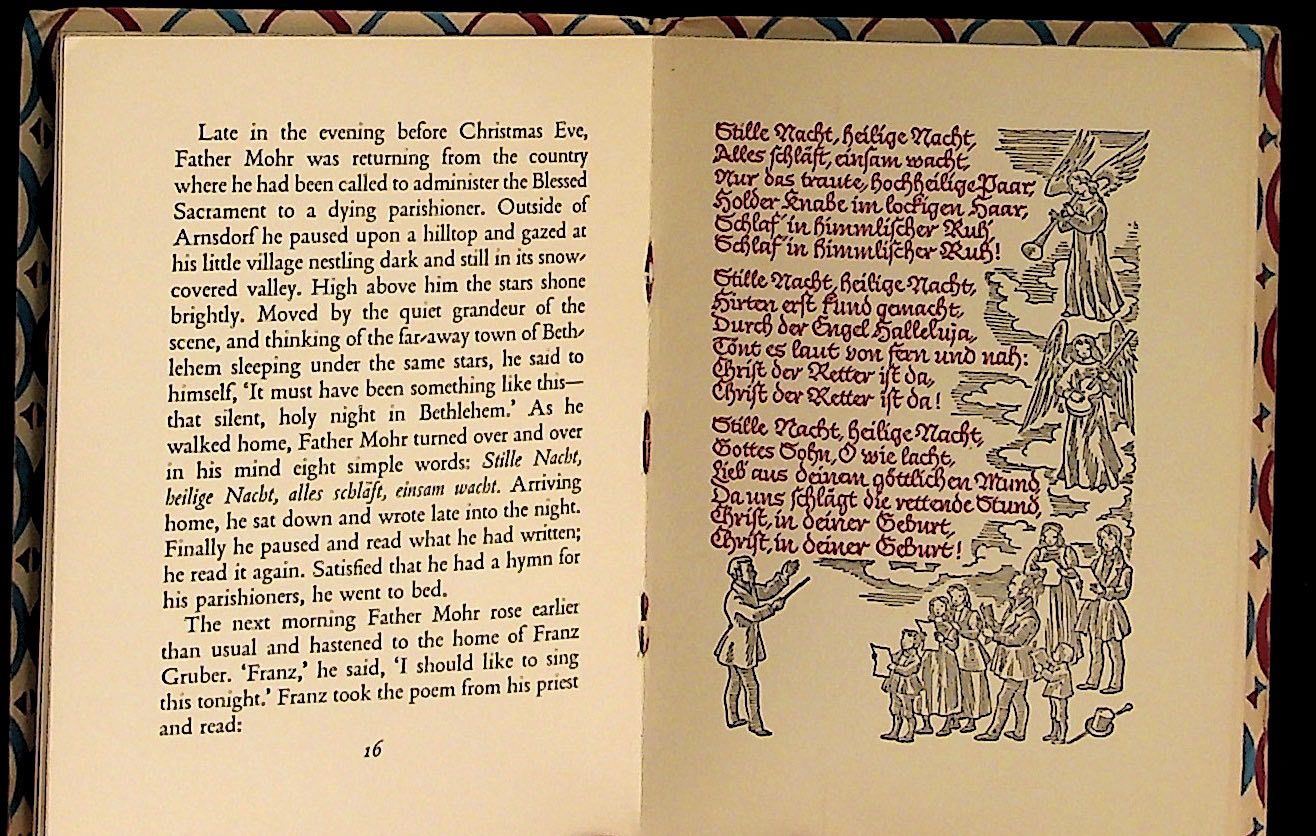 Late in the evening before Christmas Eve,
Father Mohr was returning from the country
where he had been called to administer the Blessed
Sacrament to a dying parishioner. Outside of
Arnsdorf he paused upon a hilltop and gazed at
his little village nestling dark and still in its snow-
covered valley. High above him the stars shone
brightly. Moved by the quiet grandeur of the
scene, and thinking of the far-away town of Beth-
lehem sleeping under the same stars, he said to
himself, ‘It must have been something like this—
that silent, holy night in Bethlehem.’ As he
walked home, Father Mohr turned over and over
in his mind eight simple words: Stille Nacht,
heilige Nacht, alles schläft, einsam wacht. Arriving
home, he sat down and wrote late into the night.
Finally he paused and read what he had written;
he read it again. Satisfied that he had a hymn for
his parishioners, he went to bed.
The next morning Father Mohr rose earlier
than usual and hastened to the home of Franz
Gruber. ‘Franz,’ he said, ‘I should like to sing
this tonight.’ Franz took the poem from his priest
and read:
16
Stille Nacht, heilige Nacht,
Alles schläft, einsam wacht,
Nur das traute, hochheilige Paar,
Holder Knabe im lockigen Haar,
Schlaf' in himmlischer Ruh',
Schlaf' in himmlischer Ruh'!
Stille Nacht, heilige Nacht,
Hirten erst kund gemacht,
Durch der Engel Halleluja,
Tönt es laut von fern und nah:
Christ der Retter ist da,
Christ der Retter ist da!
Stille Nacht, heilige Nacht,
Gottes Sohn, O wie lacht,
Lieb' aus deinam göttlichen Mund,
Da uns schlägt die rettende Stund,
Christ, in deiner Geburt,
Christ, in deiner Geburt!